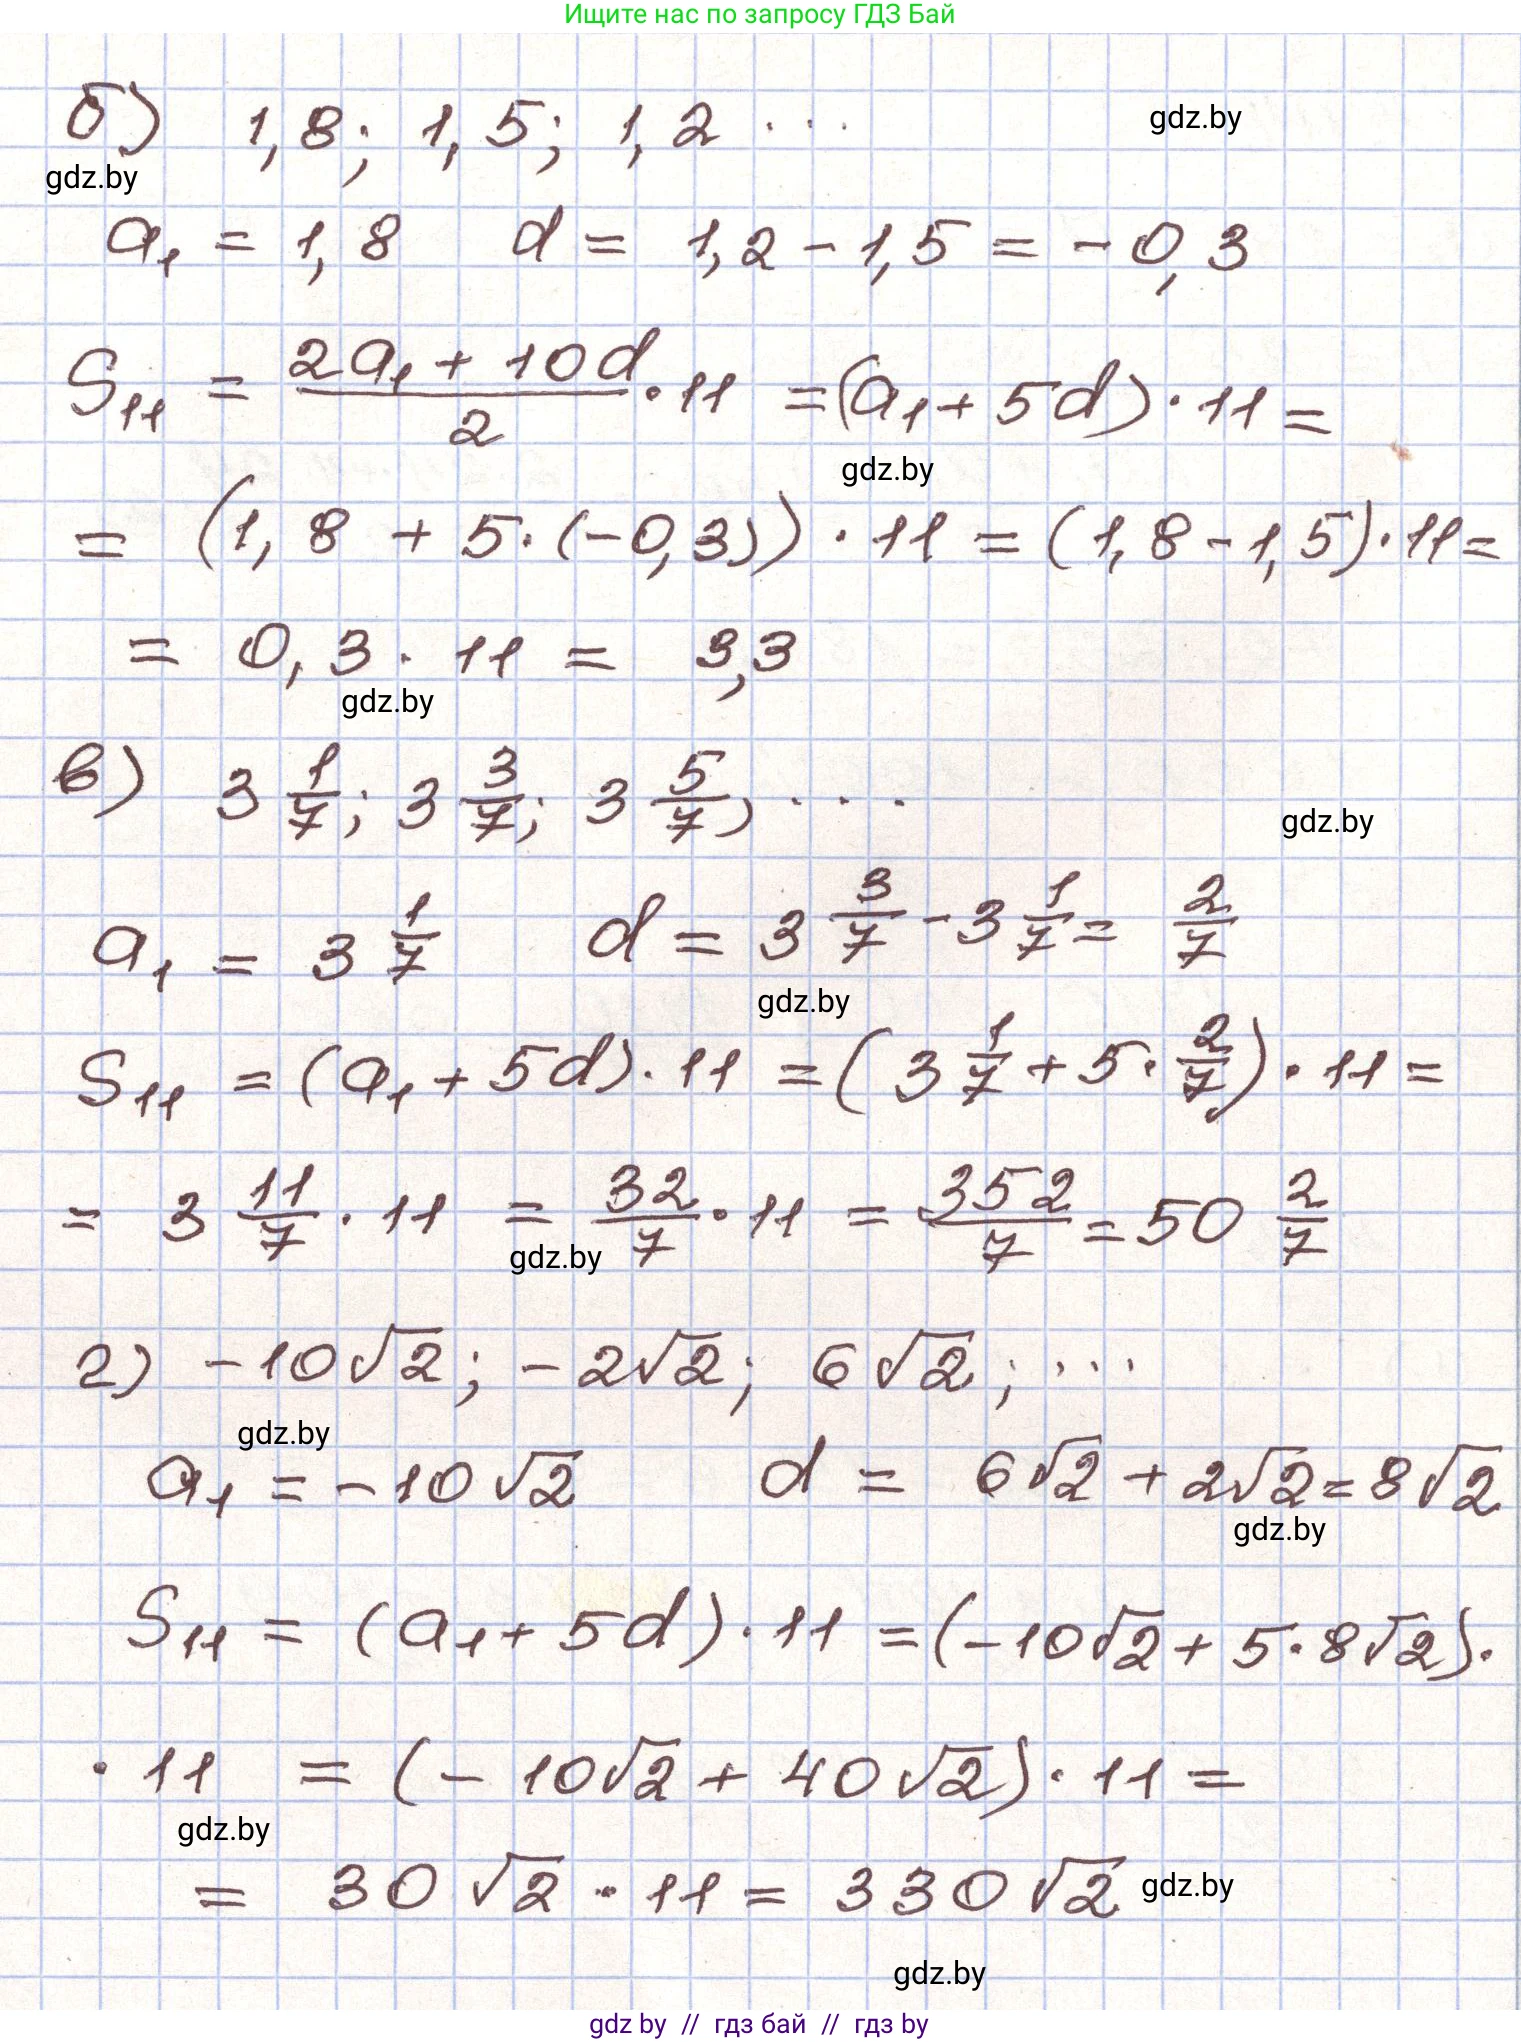 Ищите нас по запросу ГДЗ Бай
б) 1,8; 1,5; 1,2 ...
gdz.by
gdz.by
a₁ = 1,8 d = 1,2 - 1,5 = -0,3
S₁₁ = (2a₁ + 10d)/2 · 11 = (a₁ + 5d) · 11 =
gdz.by
= (1,8 + 5 · (-0,3)) · 11 = (1,8 - 1,5) · 11 =
= 0,3 · 11 = 3,3
gdz.by
в) 3 1/7; 3 3/7; 3 5/7, ...
gdz.by
a₁ = 3 1/7 d = 3 3/7 - 3 1/7 = 2/7
gdz.by
S₁₁ = (a₁ + 5d) · 11 = (3 1/7 + 5 · 2/7) · 11 =
= 3 11/7 · 11 = 32/7 · 11 = 352/7 = 50 2/7
gdz.by
г) -10√2; -2√2; 6√2; ...
gdz.by
a₁ = -10√2 d = 6√2 + 2√2 = 8√2
gdz.by
S₁₁ = (a₁ + 5d) · 11 = (-10√2 + 5 · 8√2) ·
· 11 = (-10√2 + 40√2) · 11 =
gdz.by
= 30√2 · 11 = 330√2
gdz.by
gdz.by
gdz by // гдз бай // гдз by